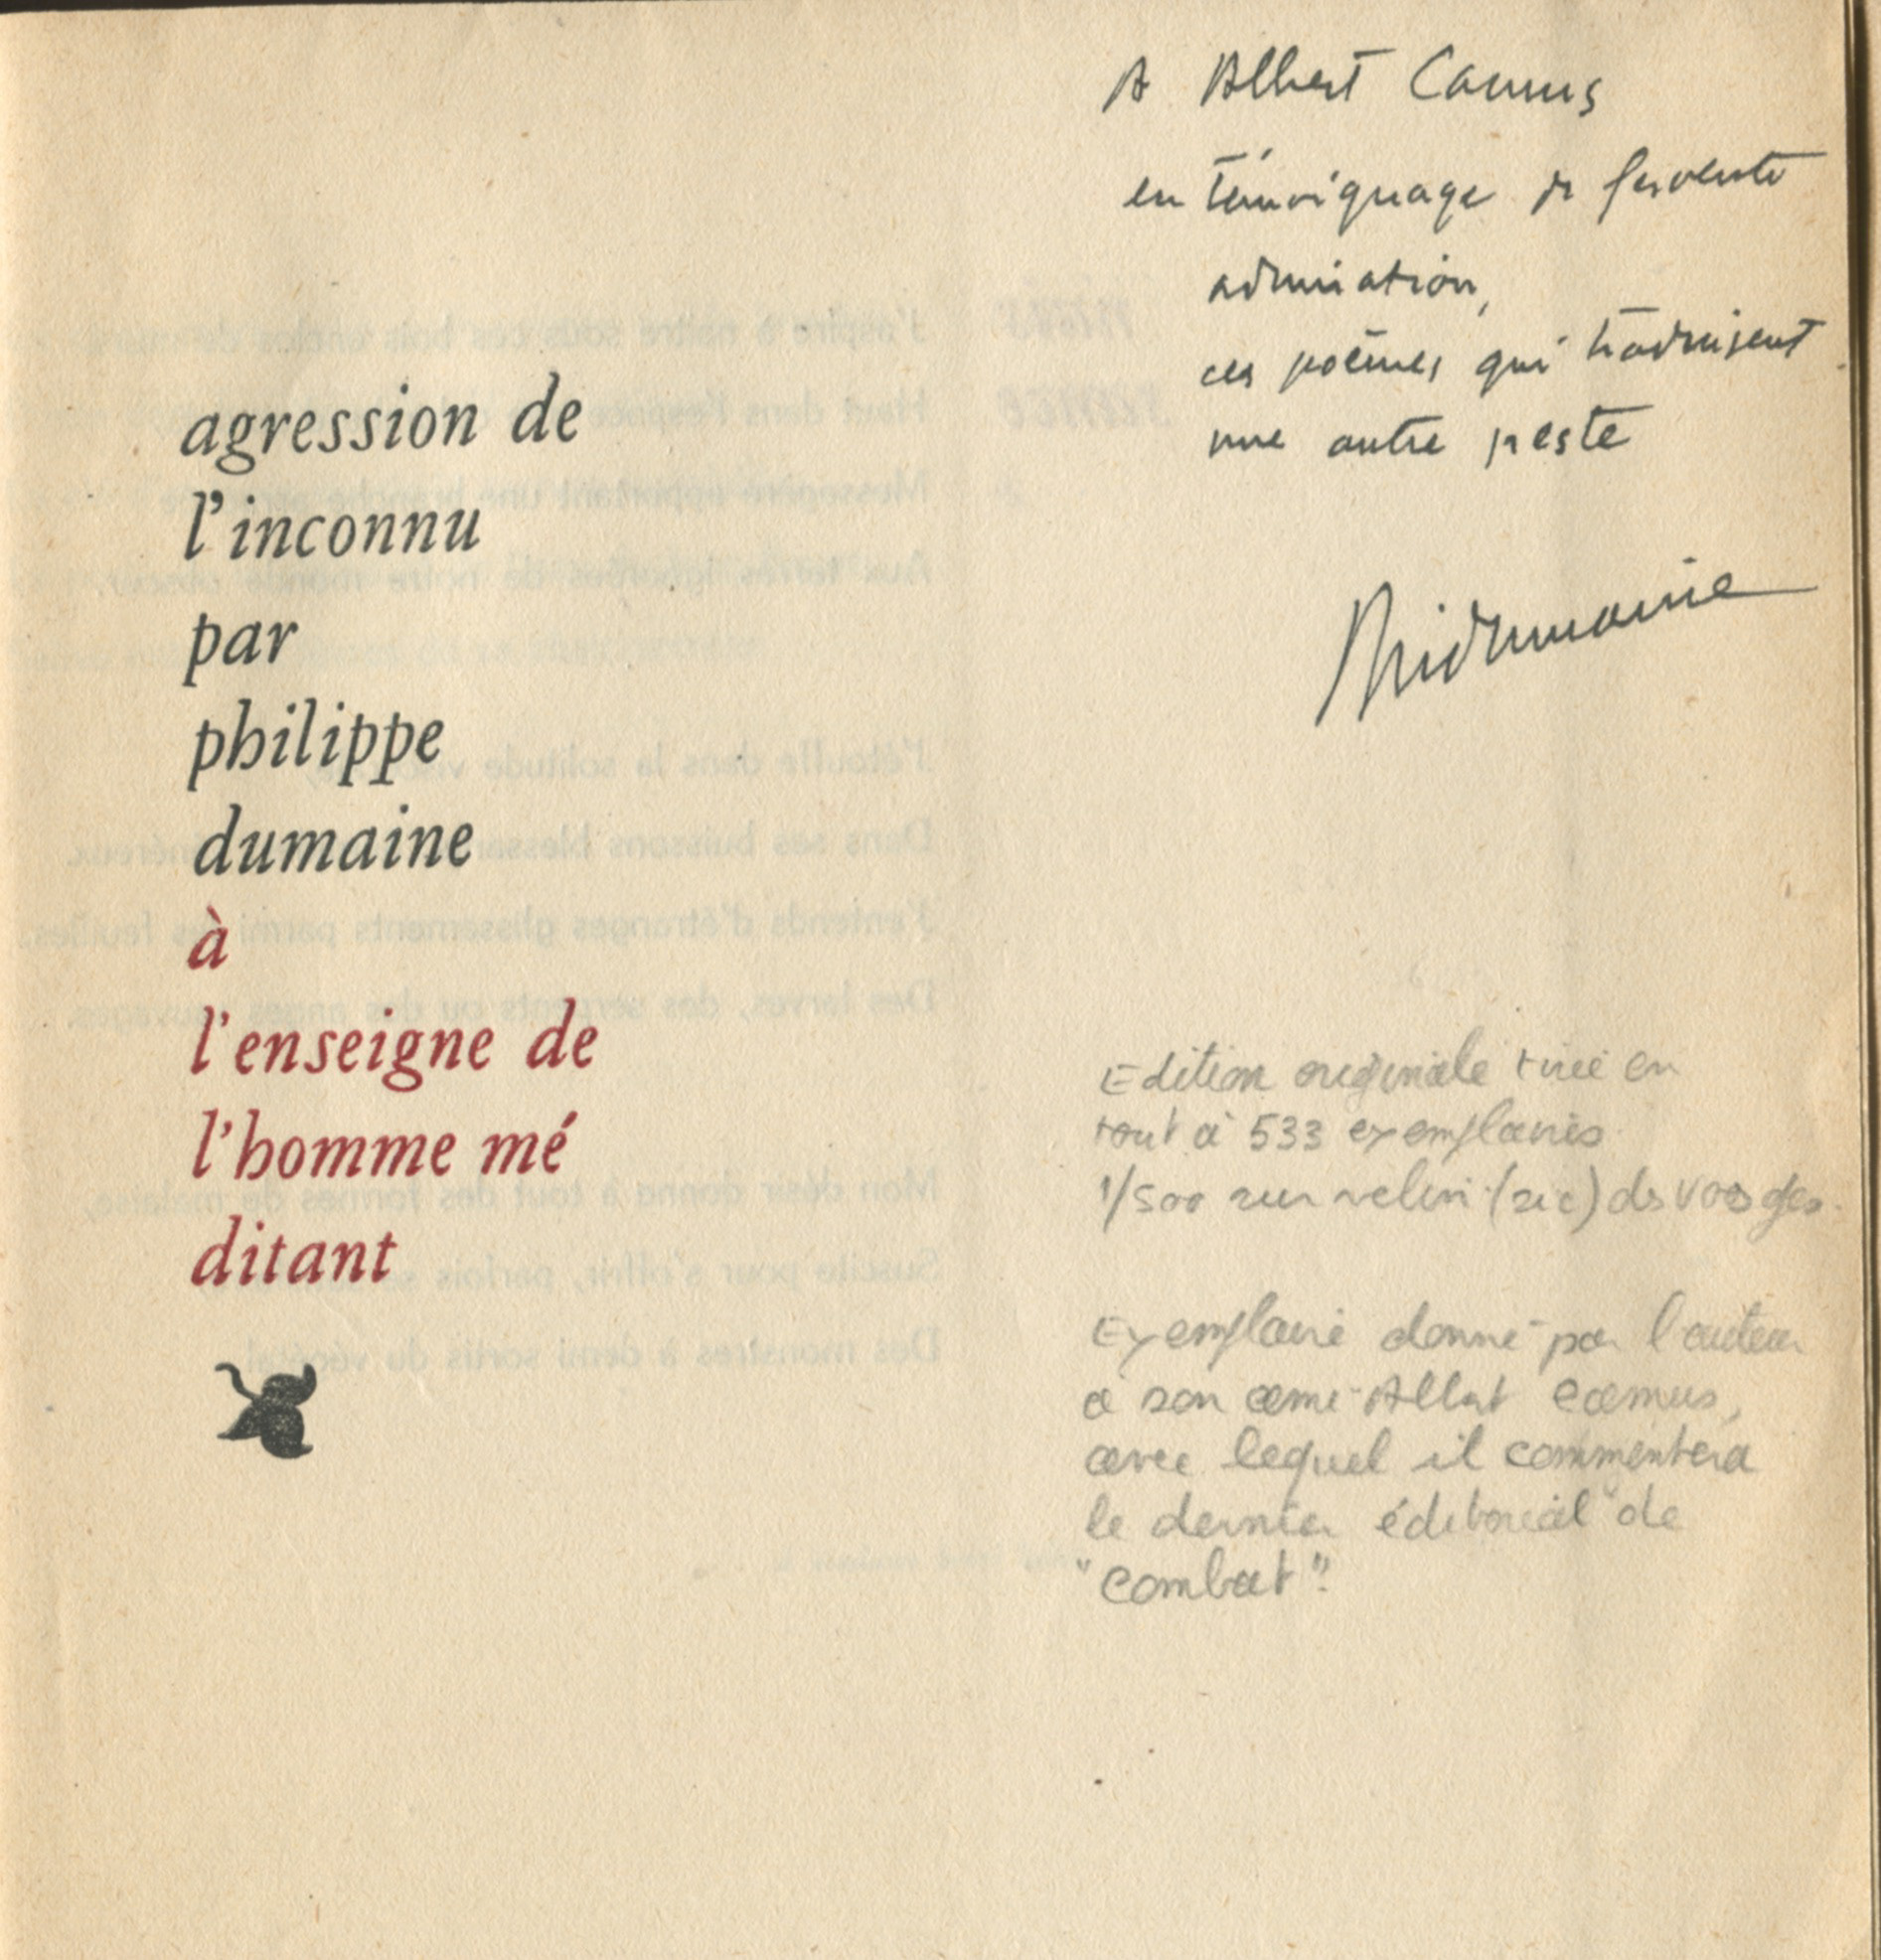 agression de
l'inconnu
par
philippe
dumaine
à
l'enseigne de
l'homme mé
ditant
A Albert Camus
en témoignage de fervente
admiration,
ces poèmes qui traduisent
une autre peste
Edition originale tirée en
tout à 533 exemplaires
1/500 sur velin (sic) des Vosges.
Exemplaire donné par l'auteur
à son ami Albert Camus,
avec lequel il commentera
le dernier éditorial de
"Combat".